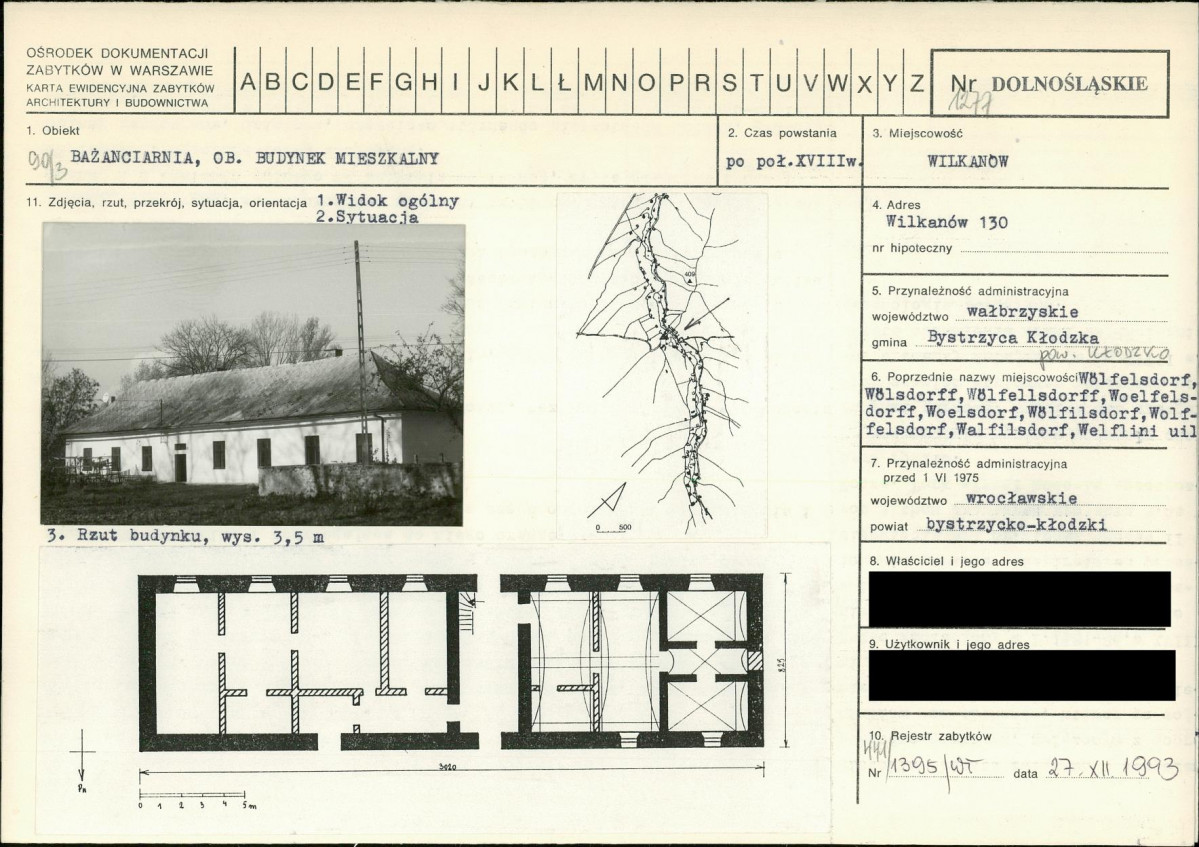 OŚRODEK DOKUMENTACJI
ZABYTKÓW W WARSZAWIE
KARTA EWIDENCYJNA ZABYTKÓW
ARCHITEKTURY I BUDOWNICTWA
A B C D E F G H I J K L Ł M N O P R S T U V W X Y Z
Nr DOLNOŚLĄSKIE
1277
1. Obiekt
90/3 BAŻANCIARNIA, OB. BUDYNEK MIESZKALNY
2. Czas powstania
po poł.XVIIIw.
3. Miejscowość
WILKANÓW
11. Zdjęcia, rzut, przekrój, sytuacja, orientacja 1.Widok ogólny
2.Sytuacja
409
0 500
3. Rzut budynku, wys. 3,5 m
825
3020
Pn
0 1 2 3 4 5m
4. Adres
Wilkanów 130
nr hipoteczny
5. Przynależność administracyjna
województwo wałbrzyskie
gmina Bystrzyca Kłodzka
pow. KŁODZKO
6. Poprzednie nazwy miejscowości Wölfelsdorf,
Wölsdorff,Wölfellsdorff,Woelfels-
dorff,Woelsdorf,Wölfilsdorf,Wolf-
felsdorf,Walfilsdorf,Welflini uil
7. Przynależność administracyjna
przed 1 VI 1975
województwo wrocławskie
powiat bystrzycko-kłodzki
8. Właściciel i jego adres
9. Użytkownik i jego adres
10. Rejestr zabytków
Nr 1395/WŁ data 27. XII. 1993